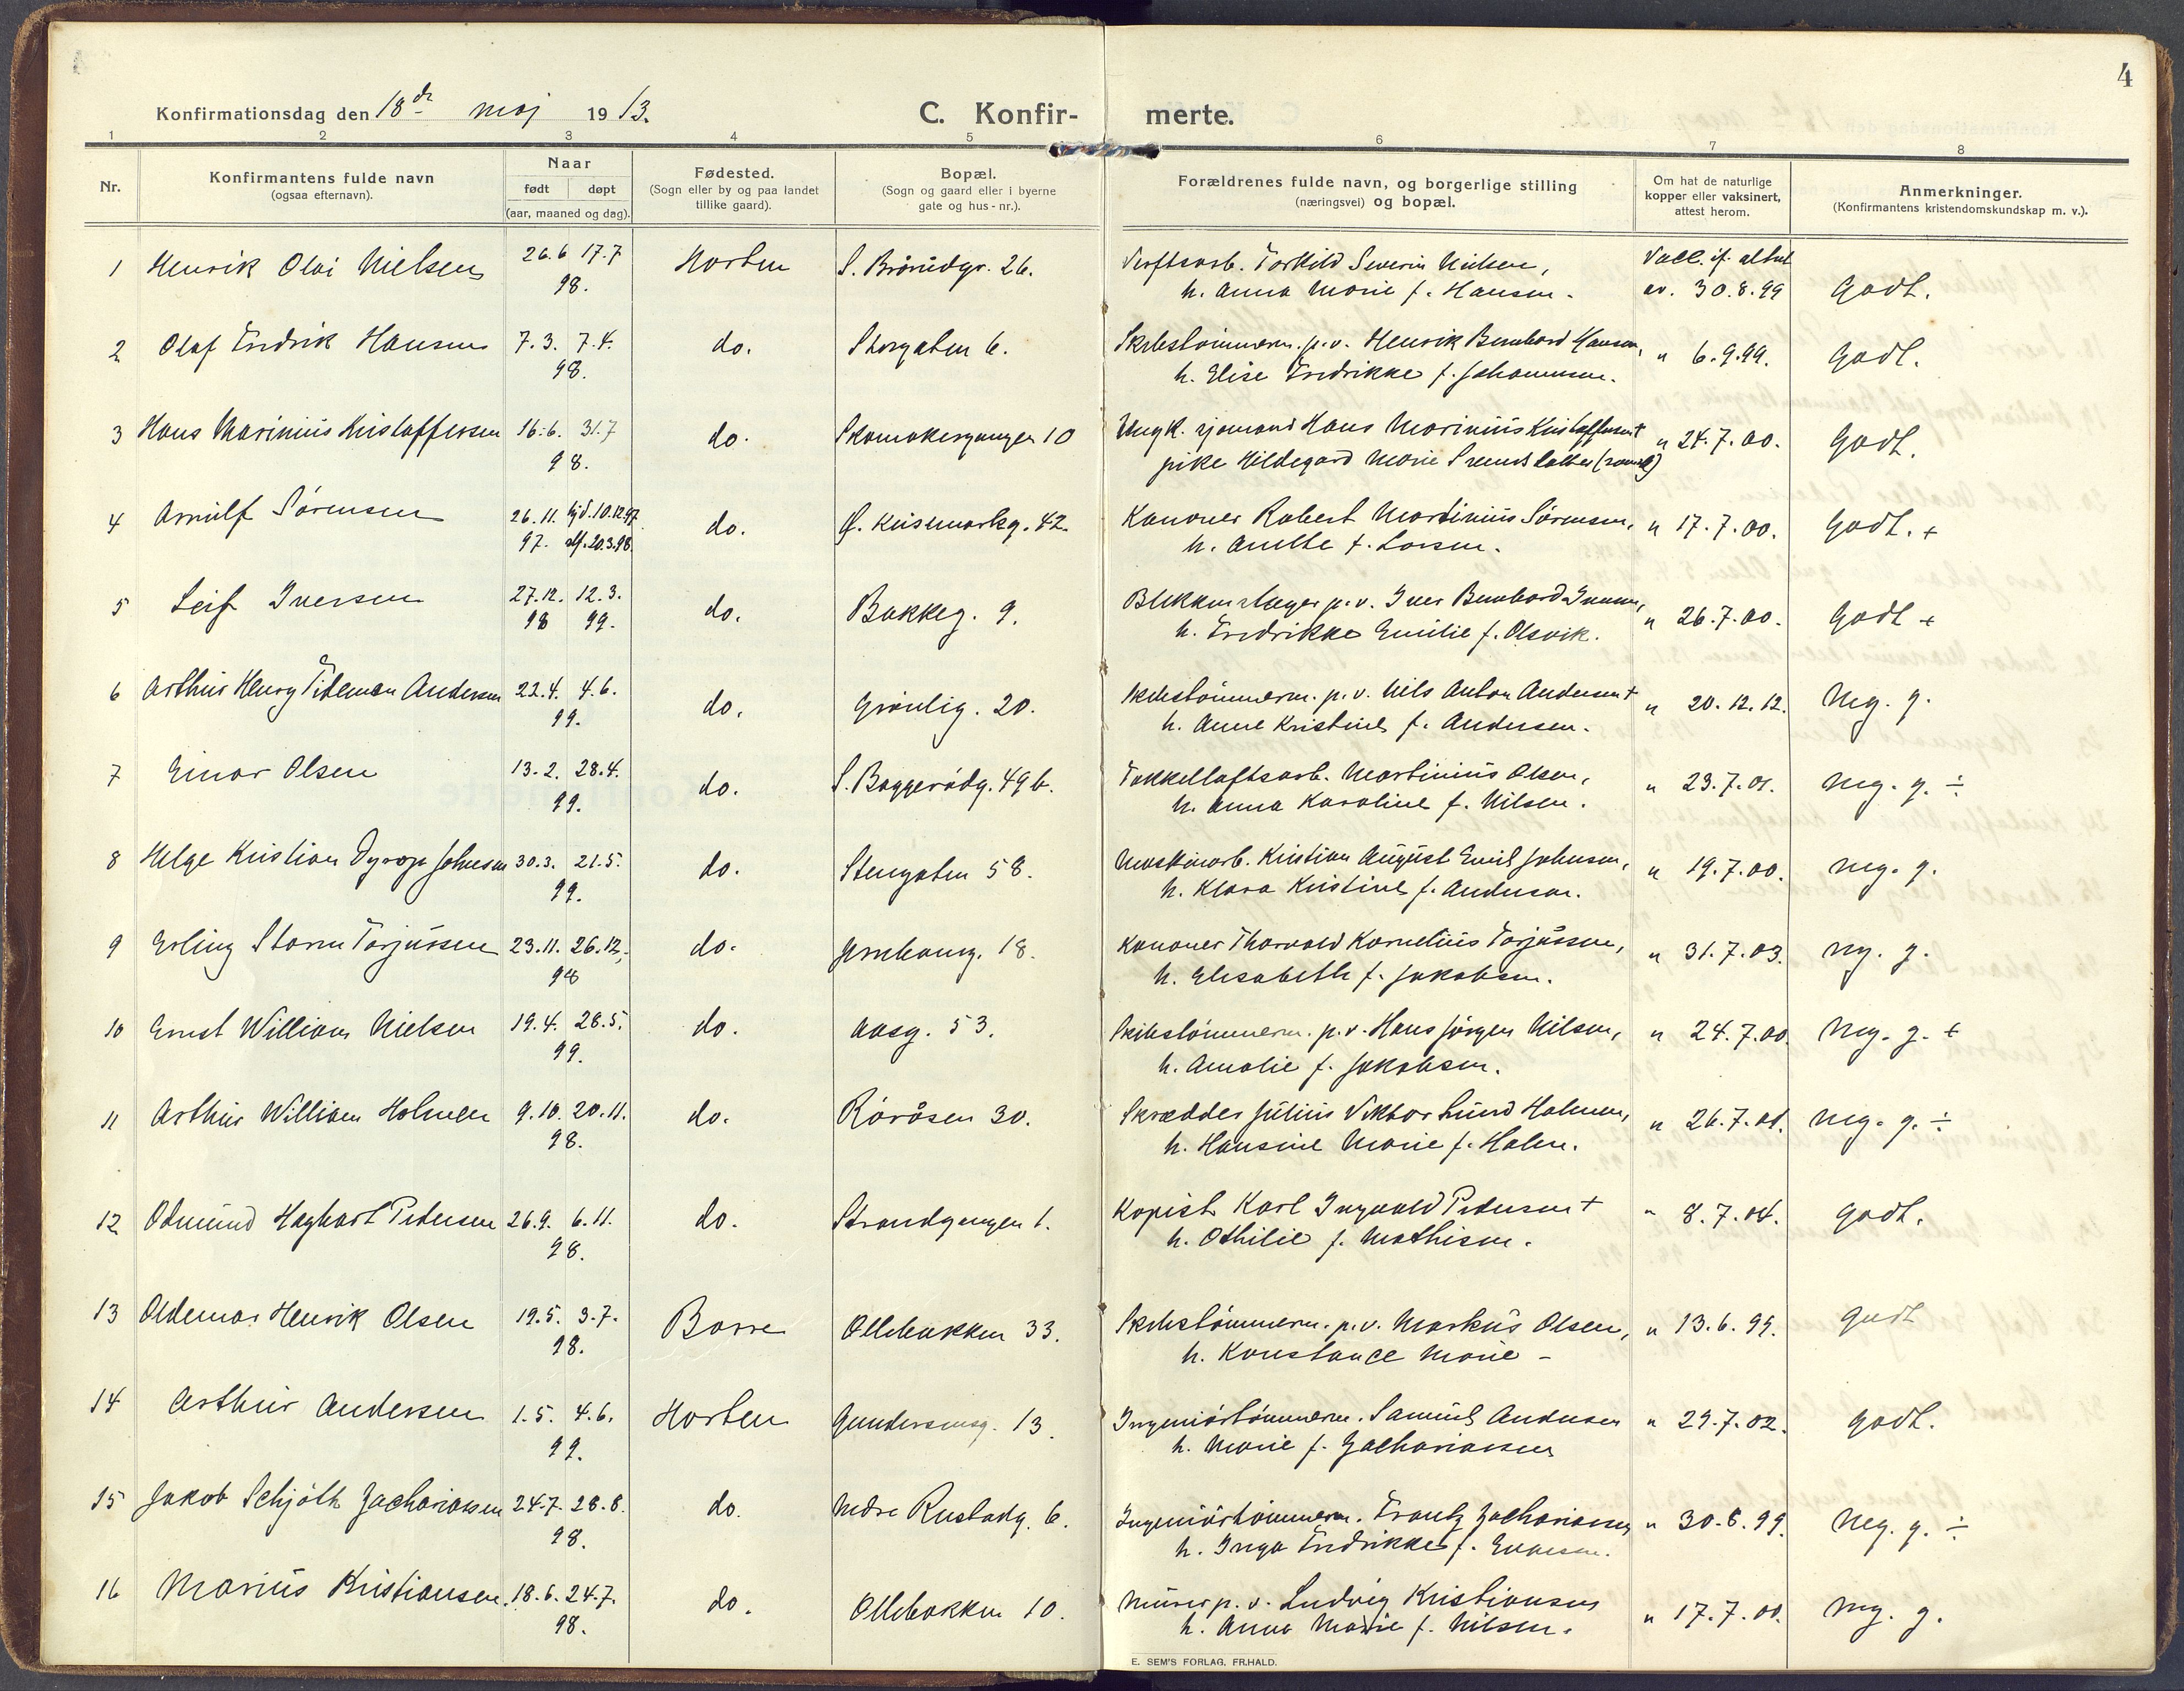 4
Konfirmationsdag den 18de maj 1913.
C. Konfir- merte.
1 2 3 4 5 6 7 8
Nr.
Konfirmantens fulde navn
(ogsaa efternavn).
Naar
født døpt
(aar, maaned og dag).
Fødested.
(Sogn eller by og paa landet
tillike gaard).
Bopæl.
(Sogn og gaard eller i byerne
gate og hus-nr.).
Forældrenes fulde navn, og borgerlige stilling
(næringsvei) og bopæl.
Om hat de naturlige
kopper eller vaksinert,
attest herom.
Anmerkninger.
(Konfirmantens kristendomskundskap m. v.).
1 Henrik Olai Nielsen 26.6 17.7 Horten S. Brårudgr. 26. Verftsarb. Torkild Severin Nielsen, Vacc. if. attest
98. h. Anna Marie f. Hansen. av. 30.8.99 Godt.
2 Olaf Fredrik Hansen 7.3. 7.4. do. Storgaten 6. Skibstømmerm. p.v. Henrik Bernhard Hansen, " 6.9.99. Godt.
98. h. Elise Fredrikke f. Johannesen.
3 Hans Marinius Kristoffersen 16.6. 31.7 do. Skomakergangen 10 Ungk. sjømand Hans Marinius Kristoffersen + " 24.7.00. Godt.
98. pike Hildegard Marie
4 Arnulf Sørensen 26.11. hjd. 10.12.97 do. Ø. Kusmarkg. 42 Kanoner Robert Martinius Sørensen, " 17.7.00. Godt. +
97. 20.3.98. h. Anethe f. Larsen.
5 Leif Iversen 27.12. 12.3. do. Bakkeg. 9. Blikkenslager p.v. Iver Bernhard Iversen, " 26.7.00. Godt +
98 99. h. Fredrikke Emilie f. Olsvik.
6 Arthur Henry Tideman Andersen 22.4. 4.6. do. Grønlig. 20. Skibstømmerm. p.v. Nils Anton Andersen + " 20.12.12. Mg. g.
99. h. Anne Kristine f. Andersen.
7 Einar Olsen 13.2. 28.4. do. S. Baggerødg. 49 b. Takkelloftsarb. Martinius Olsen, " 23.7.01. Mg. g. ÷
99. h. Anna Karoline f. Nilsen.
8 Helge Kristian Dyrop Johnsen 30.3. 21.5. do. Stengaten 58. Maskinarb. Kristian August Emil Johnsen, " 19.7.00. Mg. g.
99. h. Klara Kristine f. Andersen.
9 Erling Storm Torjussen 23.11. 26.12. do. Jernbaneg. 18. Kanoner Thorvald Kornelius Torjussen, " 31.7.03. Mg. g.
98 h. Elisabeth f. Jakobsen.
10 Ernst William Nielsen 19.4. 28.5. do. Aasg. 53. Skibstømmerm. p.v. Hans Jørgen Nilsen, " 24.7.00. Mg. g. +
99. h. Amalie f. Jakobsen.
11 Arthur William Holmen 9.10. 20.11. do. Røråsen 30. Skrædder Julius Viktor Lund Holmen, " 26.7.01. Mg. g. ÷
98. h. Hansine Marie f. Holm.
12 Odmund Haghart Pedersen 26.9. 6.11. do. Strandgangen 1. Kopist Karl Ingvald Pedersen + " 8.7.04. Godt.
98. h. Othilie f. Mathisen.
13 Oldemar Henrik Olsen 19.5. 3.7. Borre Ollebakken 33. Skibstømmerm. p.v. Markus Olsen, " 13.6.99. Godt
98. h. Konstance Marie -
14 Arthur Andersen 1.5. 4.6. Horten Gundersensg. 13. Ingeniørtømmerm. Samuel Andersen " 29.7.02. Godt.
99. h. Marie f. Zachariassen
15 Jakob Schjøth Zachariassen 24.7. 28.8. do. Nedre Rustadg. 6. Ingeniørtømmerm. Frantz Zachariassen " 30.8.99. Mg. g. ÷
98. h. Inga Fredrikke f.
16 Marius Kristiansen. 18.6. 24.7. do. Ollebakken 10. Murer p.v. Ludvig Kristiansen " 17.7.00. Mg. g.
98. h. Anna Marie f. Nilsen.
E. SEM'S FORLAG, FR.HALD.